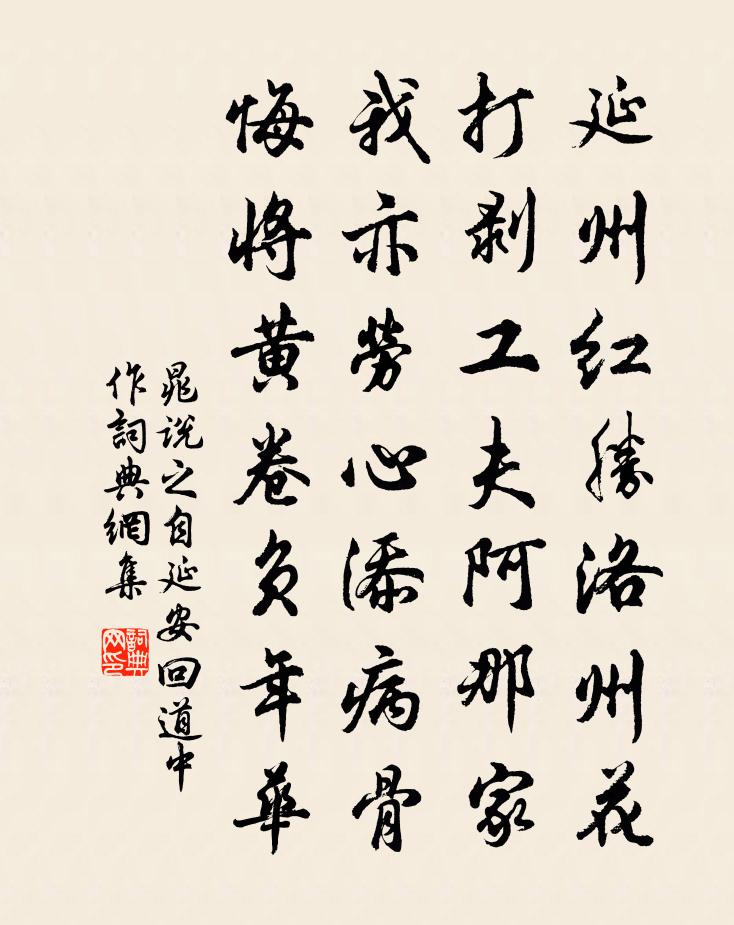 延州红勝洛州花
打剥工夫阿那家
我亦勞心添病骨
悔將黄卷負年華
晁説之自延安回道中
作詞典網集
詞典网印